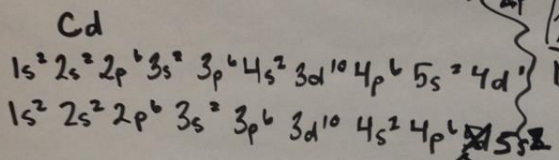 Cd
1s² 2s² 2p⁶ 3s² 3p⁶ 4s² 3d¹⁰ 4p⁶ 5s² 4d
1s² 2s² 2p⁶ 3s² 3p⁶ 3d¹⁰ 4s² 4p⁶ 5s